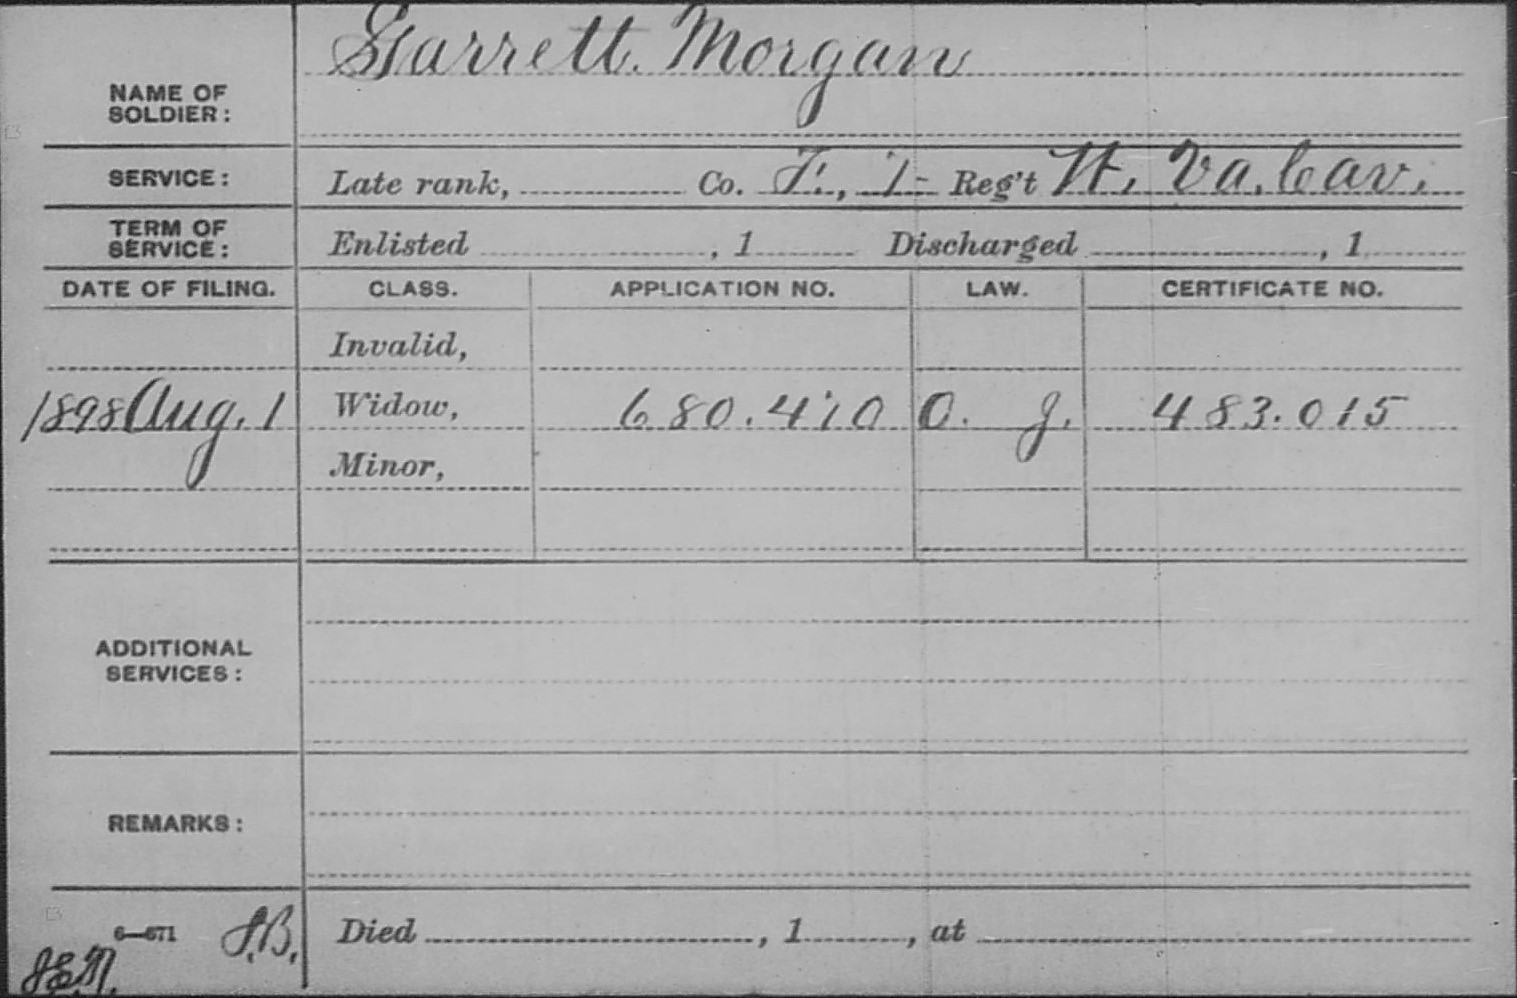 Garrett Morgan
NAME OF
SOLDIER:
SERVICE: Late rank, Co. F., 7 Reg't W. Va. Cav.
TERM OF
SERVICE: Enlisted , 1 Discharged , 1
DATE OF FILING. CLASS. APPLICATION NO. LAW. CERTIFICATE NO.
Invalid,
1898 Aug. 1 Widow, 680.410 O. J. 483.015
Minor,
ADDITIONAL
SERVICES:
REMARKS:
6—671 J.B. Died , 1 , at